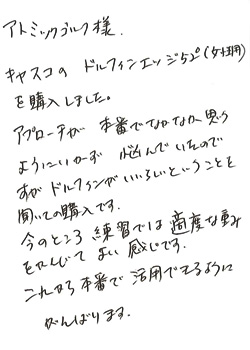 アトミックゴルフ様.
キャスコの ドルフィンウエッジ52°(女性用)
を購入しました。
アプローチが 本番でなかなか思う
ようにいかず 悩んでいたので
すが ドルフィンがいいらしいということを
聞いての購入です。
今のところ 練習では適度な重み
をかんじて よい感じです。
これから本番で 活用できるように
がんばります.